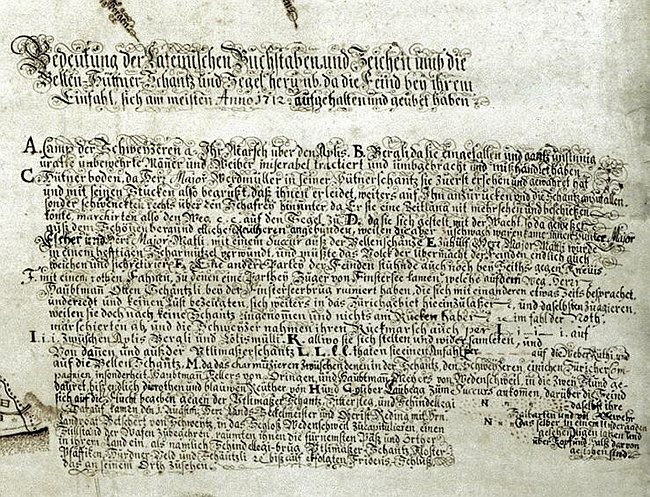 Bedeütung der Lateinischen Buchstaben und Zeichen umb die
Bellen- Hüttner Schantz und Zegel herumb, da die Feind bey ihrem
Einfahl, sich am meisten Anno 1712. aufgehalten und geübet haben
A. Camp der Schweytzeren a. Ihr Marsch über den Aplis. B. Bergli da sie eingefallen und gantz unsinnig
uralte unbewehrte Männer und Weiber miserabel tractiert und umbgebracht und mißhandlet haben
C. Hütner boden, da Herr Major Werdmüller in seiner Hütnerschantz sie zuerst ersehen und gewahret hat
und mit seinen Stucken also begrüßt, daß ihnen erleidet, weiters auf Ihn anzurücken und die Schantz anzufallen
sonder schwenckten rechts über den Schafren hinunter da Er sie eine Zeitlang nit mehr sehen und beschießen
konte, marchirten also den Weg. c. c. auf den Zegel zu D. da sie sich gestelt mit der
auß den Schönen berg und etliche angebunden, weilen die aber Major
Escher und Herr Major Matli mit einem Succurs auß der Bellenschantz E zu hülff Herr Major Mattli wurd
in einem hefftigen Scharmützel verwundt, und müßte das Volck der übermacht der Feinden endlich
weichen und sich retirirn F. Eine andere Parthey der Feinden stuhnde auch noch bey Seiths gegen Kneüs
mit einen rothen Fahnen, zu denen eine Parthey Zuger von Finstersee kamen, welche auf dem Weg Herr
Haubtmann Ören Schantzli bey der Finsterseebrug ruiniert haben, die sich mit ein anderen etwas Zeits besprachet,
underredt und keinen Lust bezeügten, sich weiters in das Zürichgebiet hineinzulaßen, und daselbsten zuagieren,
weilen sie doch nach keine Schantz eingnommen und nichts am Rücken haben im fahl der Noth.
marschierten ab, und die Schweytzer nahmen ihren Ruckmarsch auch per I. i. i. i. auf
I. i. i. zwüschen Aplis Bergli und Rötismülli. K. allwo sie sich stellten und wider samleten, und
Von danen und auß der Ittlimatzerschantz L. L. l. l. thaten sie einen Anfahl auf die Weber Rüthi und
auf die Bellen Schantz. M. da das charmüzieren zwüschen denen in der Schantz, den Schweytzeren einichen Züricheren
namen insonderheit Haubtman Zellers von Hirtzen, und Haubtman Eschers von Wedenschweil, in die zwey Stund ge-
dauret, biß endlich die rothen und blauwen Reüther von Hütten G. über Laubegg zum Succurs ankomen, darüber die Feind
sich auf die Flucht begeben gegen der Ittlimatzer Schantz, Ritter, und Schindellegi N daselbst ihre
Darauf kam den 1. Augusti, Herr Landseckelmeister und Oberist Reding mit Hrn Halparten und vil Gewehr
Landvogt Betschert von Schweytz, in das Schloß Wedenschweil zu capitulieren, einen N. Daselben in einem underzogen
Stillstand der Waffen zubedächten, raumten ihnen die fürnemsten Päß und Orther gelegen haben und
in ihrem Land ein, als namlich Schindellegi-brug, Ittlimatzer Schantz, Kloster über Kopf und Halß darvon
Pfäffiken, Hürdner Veld und Schäntzli &c. biß auf erfolgten Fridens-Schluß, geloffen sind
das an seinem Orth zusehen